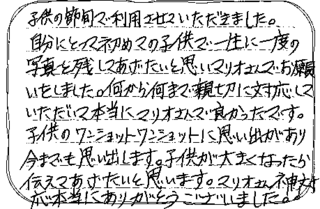 子供の節句で利用させていただきました。
自分にとって初めての子供で一生に一度の
写真を残してあげたいと思いマリオさんでお願
いをしました。何から何まで親切に対応して
いただいて本当にマリオさんで良かったです。
子供のワンショットワンショットに思い出があり
今までも思い出します。子供が大きくなったら
伝えてあげたいと思います。マリオさん神対
応本当にありがとうございました。